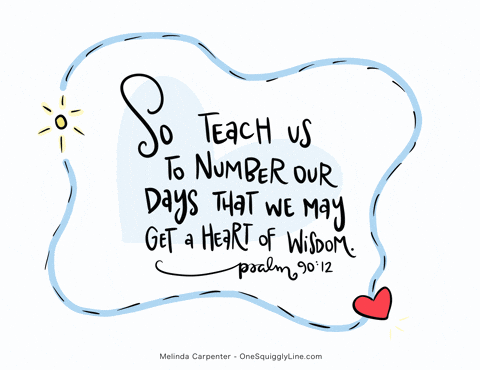 So TEACH US
TO NUMBER OUR
DAYS THAT WE MAY
GET a HEART OF WISDOM.
psalm 90:12
Melinda Carpenter - OneSquigglyLine.com